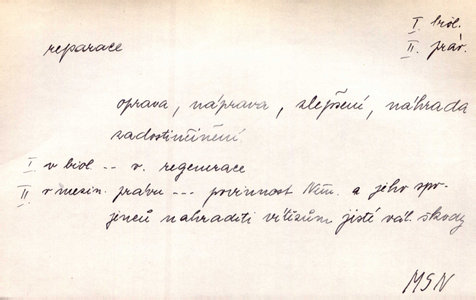 I. biol.
reparace
II. práv.
oprava, náprava, zlepšení, náhrada
zadostiučinění
I v biol -- v. regenerace
II v mezin. právu --- povinnost Něm. a jeho spo-
jenců nahraditi vítězům jisté vál. škody
MSN